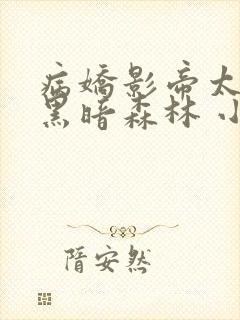 病嬌影帝太
黑暗森林 小
隋安然